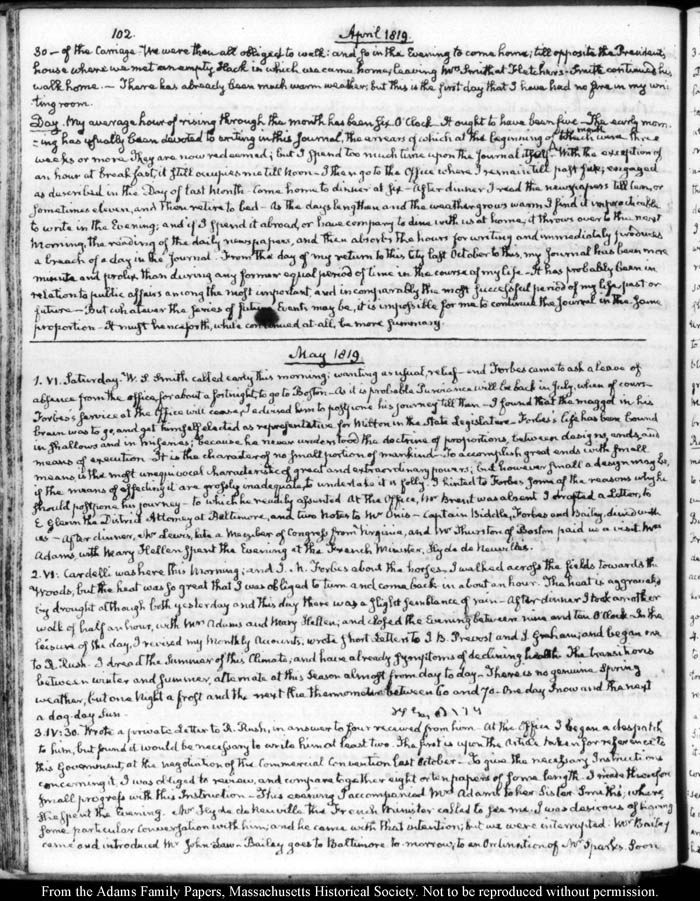 102.
April 1819.
30 - of the Carriage. We were then all obliged to walk: and so in the Evening to come home; till opposite the President's
house where we met an empty Hack in which we came home; leaving Mrs Smith at Fletchers. Smith continued his
walk home. — There has already been much warm weather; but this is the first day that I have had no fire in my wri-
ting room.
Day. My average hour of rising through the month has been Six O'Clock. It ought to have been five. The early morn-
=ing has usually been devoted to writing in this Journal, the arrears of which at the beginning of the month were three
weeks or more. They are now redeemed; but I spend too much time upon the Journal itself. With the exception of
an hour at breakfast, it still occupies me till Noon. I then go to the Office where I remain till past five; engaged
as described in the Day of last Month. Come home to dinner at Six. After dinner I read the newspapers till ten, or
sometimes eleven, and then retire to bed. As the days lengthen and the weather grows warm I find it impracticable
to write in the Evening; and if I spend it abroad, or have company to dine with us at home, it throws over to the next
Morning, the reading of the daily newspapers, and then absorbs the hours for writing and immediately produces
a breach of a day in the Journal. From the day of my return to this City last October to this, my Journal has been more
minute and prolix than during any former equal period of time in the course of my life. It has probably been in
relation to public affairs among the most important, and incomparably the most successful period of my life past or
future. But whatever the series of future Events may be, it is impossible for me to continue the Journal in the same
proportion. It must henceforth, while continued at all, be more summary.
May 1819.
1. VI. Saturday. W. S. Smith called early this morning; wanting as usual, relief. and Forbes came to ask a leave of
absence from the office, for about a fortnight, to go to Boston. As it is probable Purviance will be back in July, when of course
Forbes's service at the Office will cease, I advised him to postpone his journey till then. I found that the maggot in his
brain was to go, and get himself elected as representative for Milton in the State Legislature. Forbes's life has been bound
in shallows and in miseries; because he never understood the doctrine of proportions, between designs, ends, and
means of execution. It is the character of no small portion of mankind. To accomplish great ends with small
means is the most unequivocal characteristic of great and extraordinary powers; but however small a design may be,
if the means of effecting it are grossly inadequate, to undertake it is folly. I hinted to Forbes some of the reasons why he
should postpone his journey. to which he readily assented. At the Office, Mr Brent was absent. I drafted a Letter, to
E. Glenn the District Attorney at Baltimore, and two Notes to Mr Onis. Captain Biddle, Forbes and Bailey, dined with
us. After dinner, Mr Lewis, late a Member of Congress from Virginia, and Mr Thurston of Boston paid us a visit. Mrs
Adams, with Mary Hellen spent the Evening at the French Minister, Hyde de Neuville's.
2. VI: Cardelli was here this Morning; and J. M. Forbes about the horses. I walked across the fields towards the
Woods, but the heat was so great that I was obliged to turn and come back in about an hour. The heat is aggravated
by drought although both yesterday and this day there was a slight semblance of rain. After dinner I took another
walk of half an hour, with Mrs Adams and Mary Hellen; and closed the Evening between nine and ten O'Clock. In the
leisure of the day, I revised my Monthly Accounts, wrote short Letters to J. B. Prevost and J. Graham; and began one
to R. Rush. I dread the Summer of this Climate; and have already symptoms of declining health. The transitions
between winter and summer, alternate at this season almost from day to day. There is no genuine Spring
weather, but one Night a frost and the next the thermometer between 60 and 70. One day snow and the next
a dog-day Sun.
3. IV: 30. Wrote a private Letter to R. Rush, in answer to four received from him. At the Office I began a despatch
to him, but found it would be necessary to write him at least two. The first is upon the Articles taken for reference to
this Government, at the negotiation of the Commercial Convention last October. To give the necessary Instructions
concerning it I was obliged to review, and compare together eight or ten papers of some length. I made therefore
small progress with this Instruction. This evening I accompanied Mrs Adams to her Sister Smith's, where
she spent the Evening. Mr Hyde de Neuville the French Minister called to see me. I was desirous of having
some particular Conversation with him; and he came with that intention; but we were interrupted. Mr Bailey
came and introduced Mr John Law. Bailey goes to Baltimore to-morrow, to an Ordination of Mr Sparks. Soon
From the Adams Family Papers, Massachusetts Historical Society. Not to be reproduced without permission.